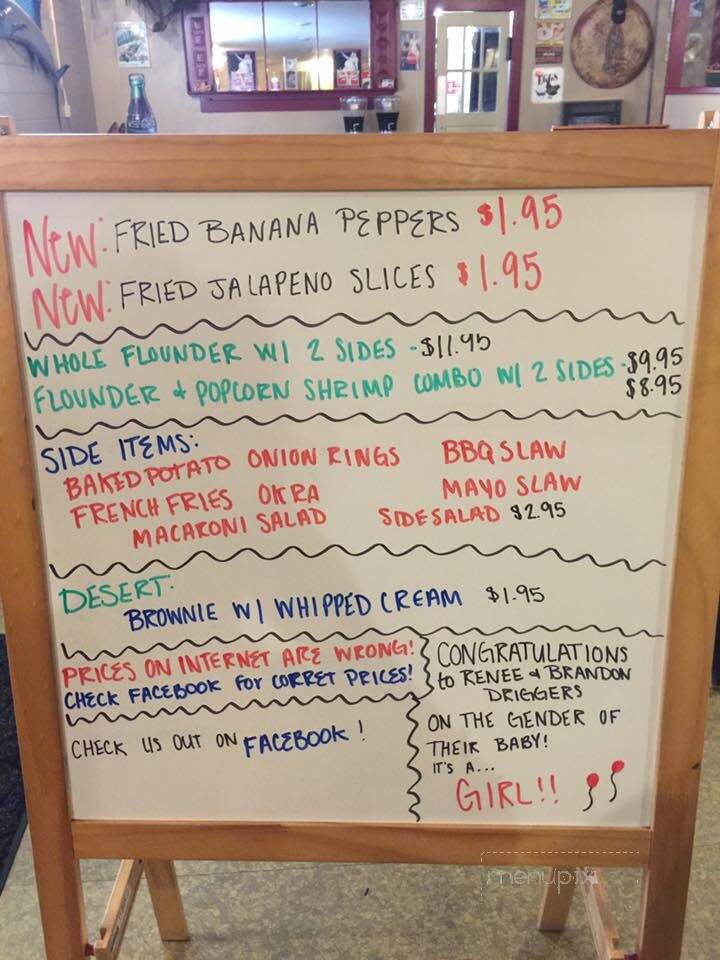 NEW: FRIED BANANA PEPPERS $1.95
NEW: FRIED JALAPENO SLICES $1.95
WHOLE FLOUNDER W/ 2 SIDES - $11.95
FLOUNDER & POPCORN SHRIMP COMBO W/ 2 SIDES - $9.95
$8.95
SIDE ITEMS:
BAKED POTATO ONION RINGS BBQ SLAW
FRENCH FRIES OKRA MAYO SLAW
MACARONI SALAD SIDE SALAD $2.95
DESERT:
BROWNIE W/ WHIPPED CREAM $1.95
PRICES ON INTERNET ARE WRONG!
CHECK FACEBOOK FOR CORRET PRICES!
CHECK US OUT ON FACEBOOK!
CONGRATULATIONS
to RENEE & BRANDON
DRIGGERS
ON THE GENDER OF
THEIR BABY!
IT'S A...
GIRL!!
menupix